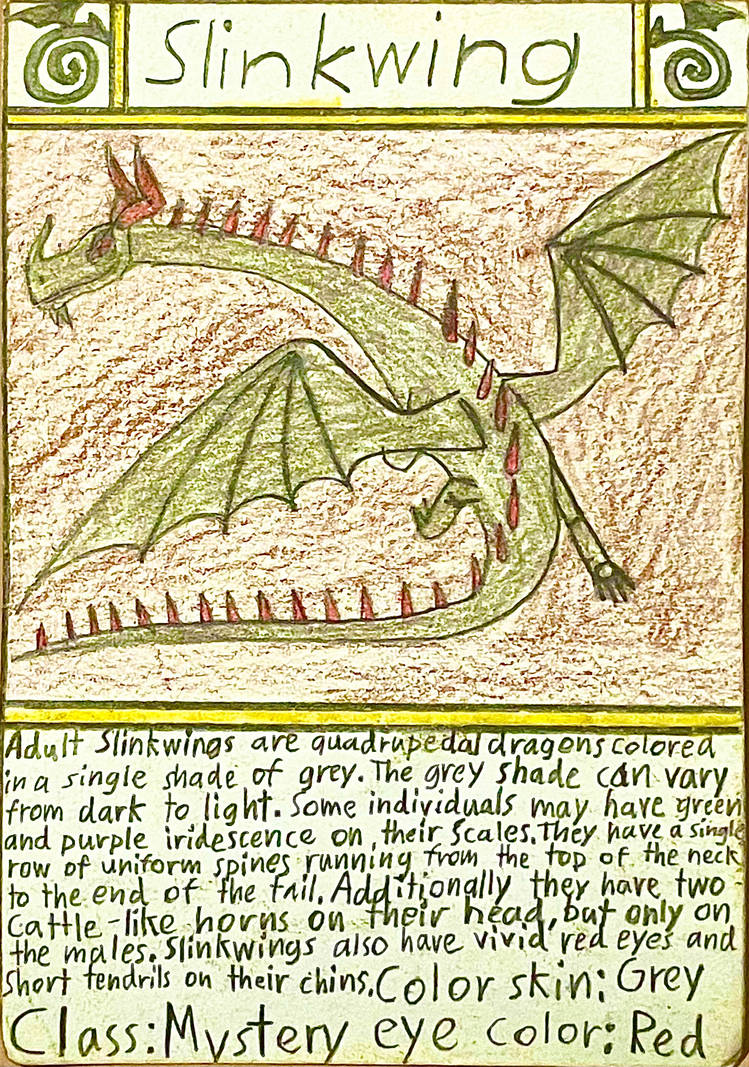 Slinkwing
Adult Slinkwings are quadrupedal dragons colored
in a single shade of grey. The grey shade can vary
from dark to light. Some individuals may have green
and purple iridescence on their scales. They have a single
row of uniform spines running from the top of the neck
to the end of the tail. Additionally they have two
cattle-like horns on their head, but only on
the males. Slinkwings also have vivid red eyes and
short tendrils on their chins. Color skin: Grey
Class: Mystery eye color: Red